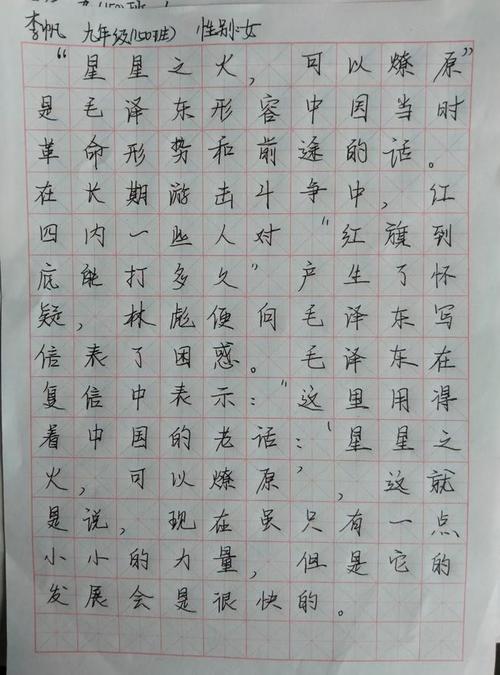 李帆 九年级(150班) 性别:女
“星星之火，可以燎原”
是毛泽东形容中国当时
革命形势和前途的话。
在长期游击斗争中，红
四内一些人对“红旗到
底能打多久”产生了怀
疑，林彪便向毛泽东写
信表了困惑。毛泽东在
复信中表示：“这里用得
着中国的老话：‘星星之
火，可以燎原’，这就
是说，现在虽只有一点
小小的力量，但是它的
发展会是很快的。